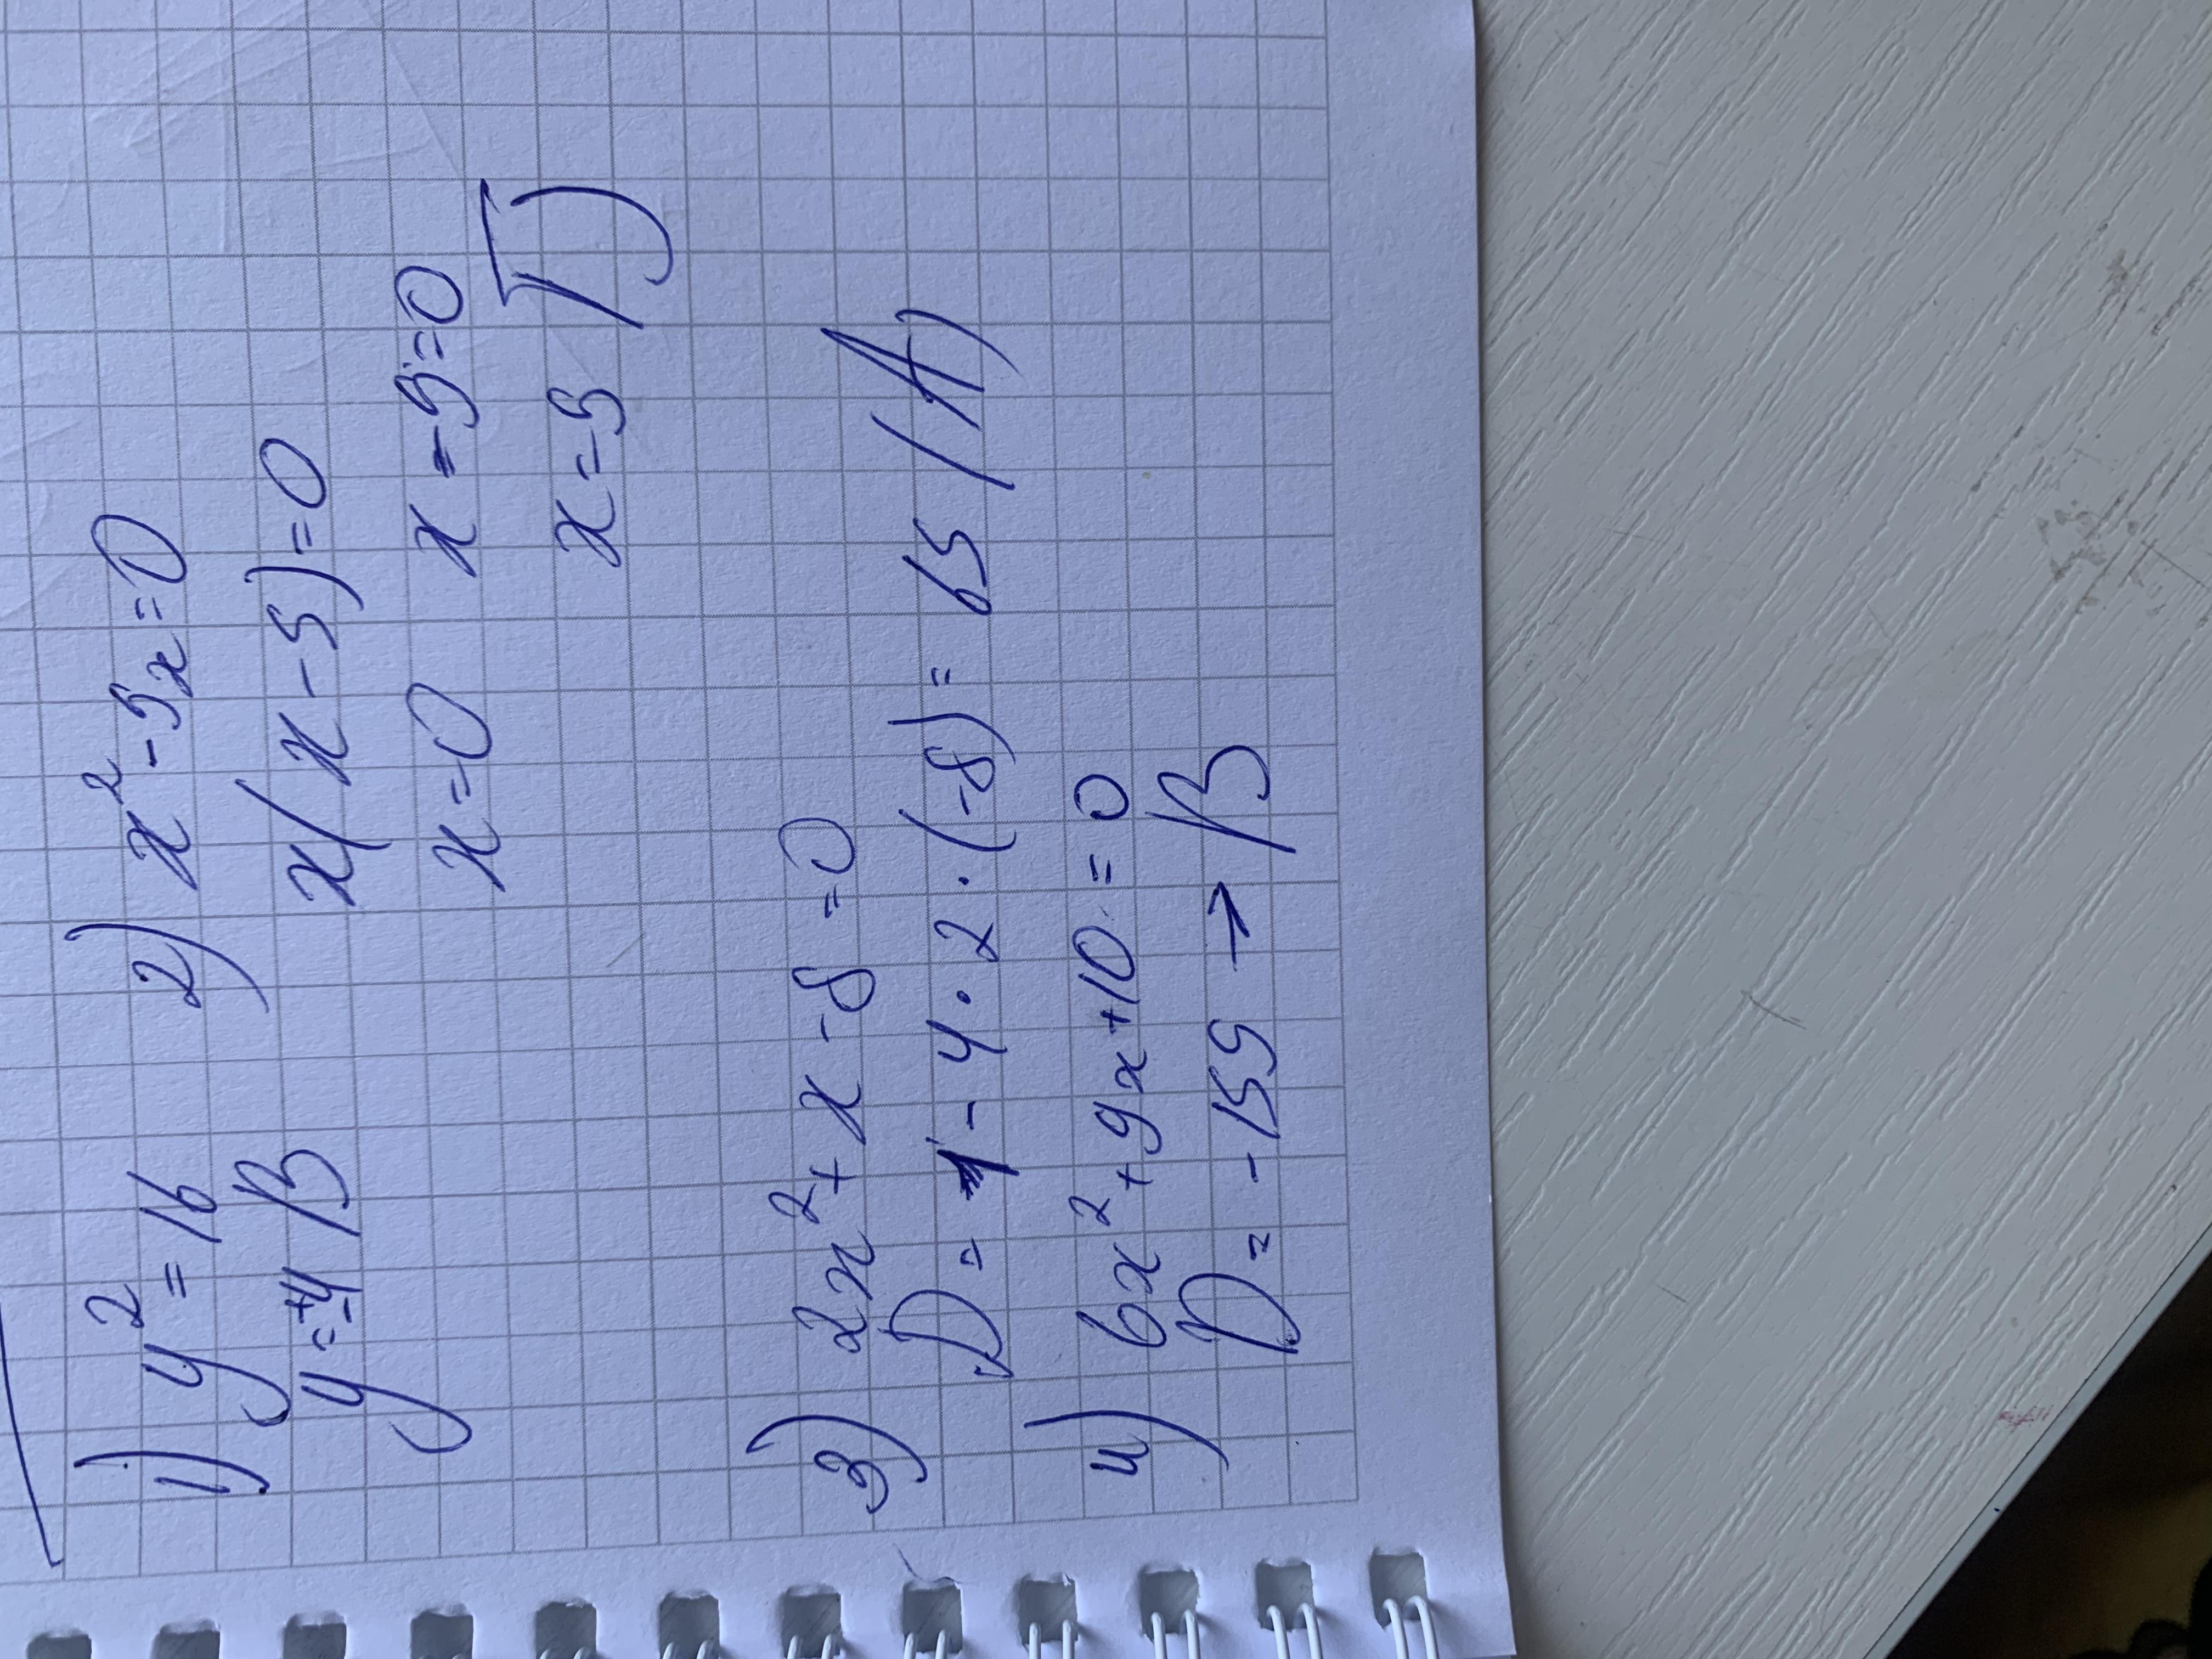 1) y² = 16
y = ±4 В
2) x² - 5x = 0
x(x - 5) = 0
x = 0 x - 5 = 0
x = 5 Г)
3) 2x² + x - 8 = 0
D = 1 - 4 · 2 · (-8) = 65 (А)
4) 6x² + 9x + 10 = 0
D = - 159 → В